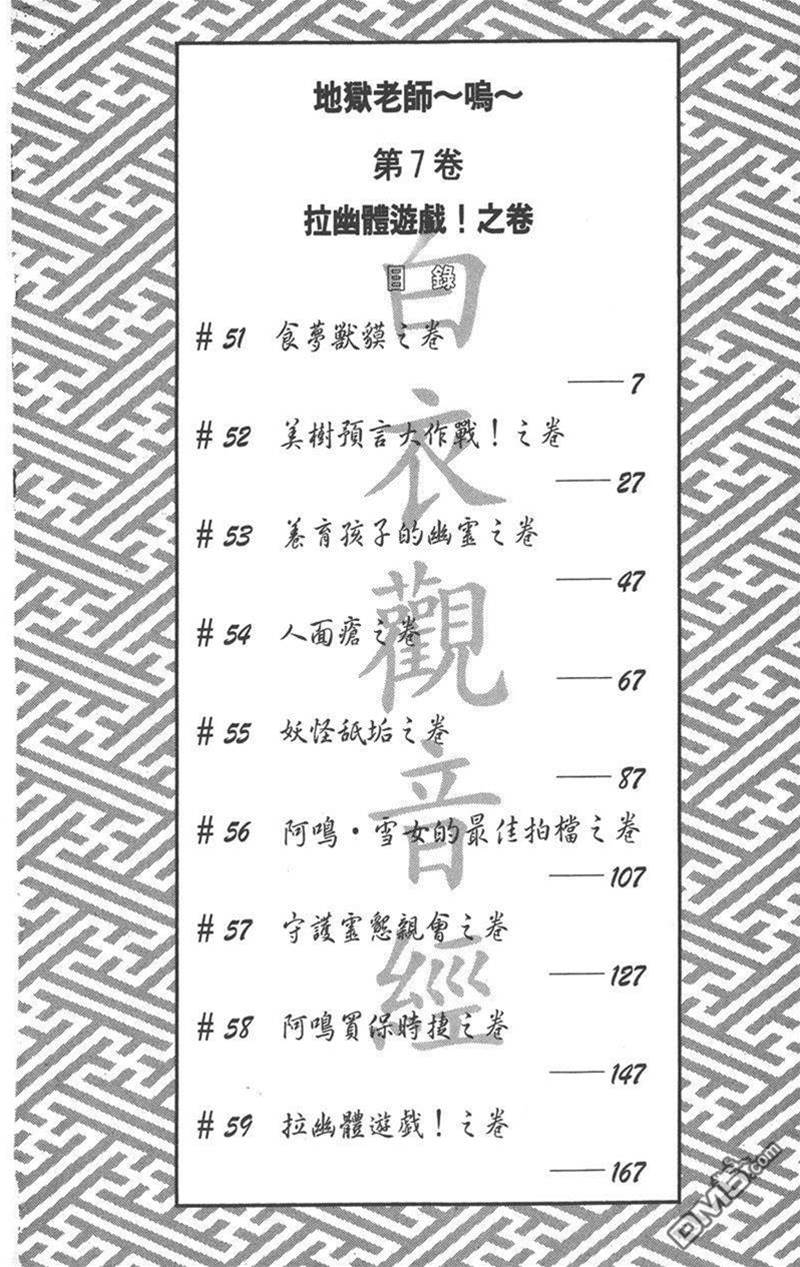 地獄老師～鳴～
第7卷
拉幽體遊戲！之卷
目錄
# 51 食夢獸貘之卷
7
# 52 美樹預言大作戰！之卷
27
# 53 養育孩子的幽靈之卷
47
# 54 人面瘡之卷
67
# 55 妖怪舐垢之卷
87
# 56 阿鳴・雪女的最佳拍檔之卷
107
# 57 守護靈懇親會之卷
127
# 58 阿鳴買保時捷之卷
147
# 59 拉幽體遊戲！之卷
167
白衣觀音經
DM5.com